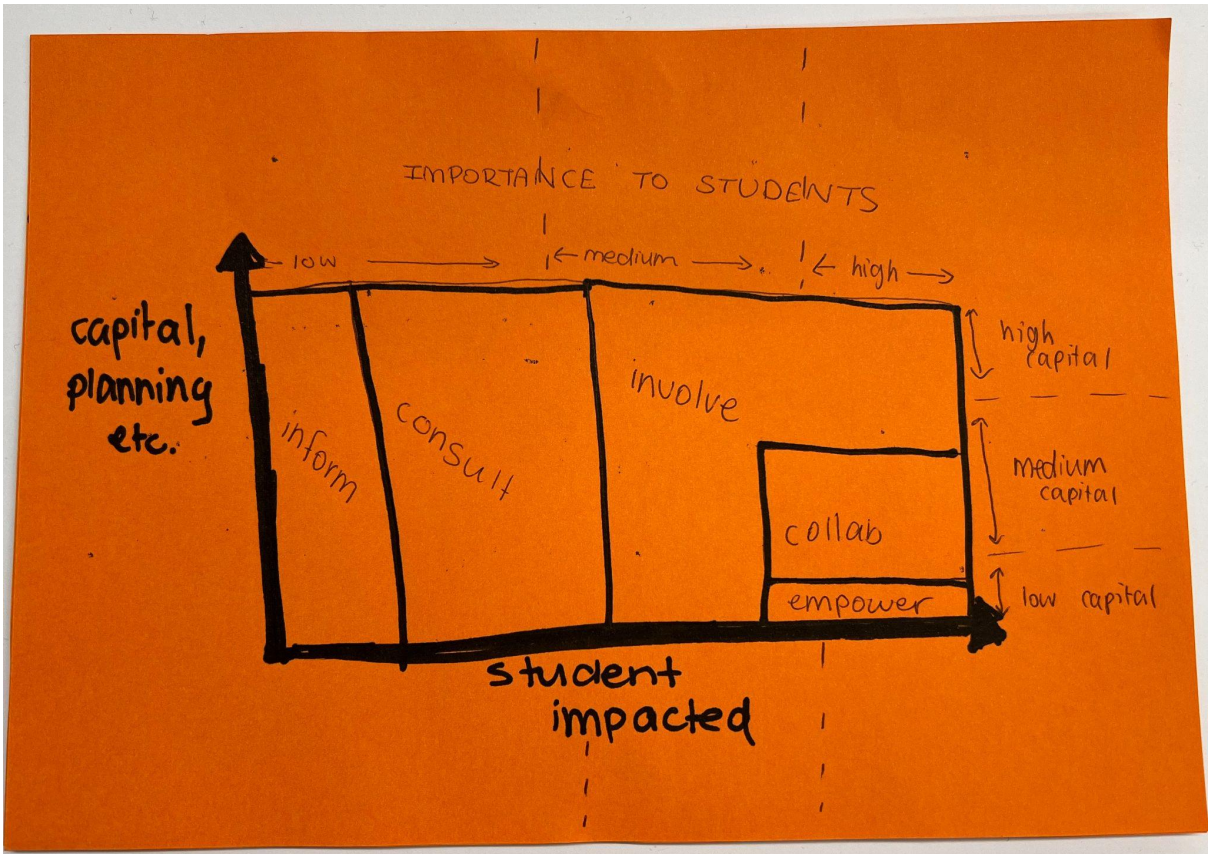 IMPORTANCE TO STUDENTS
low
medium
high
capital,
planning
etc.
inform
consult
involve
collab
empower
high
capital
medium
capital
low capital
student
impacted